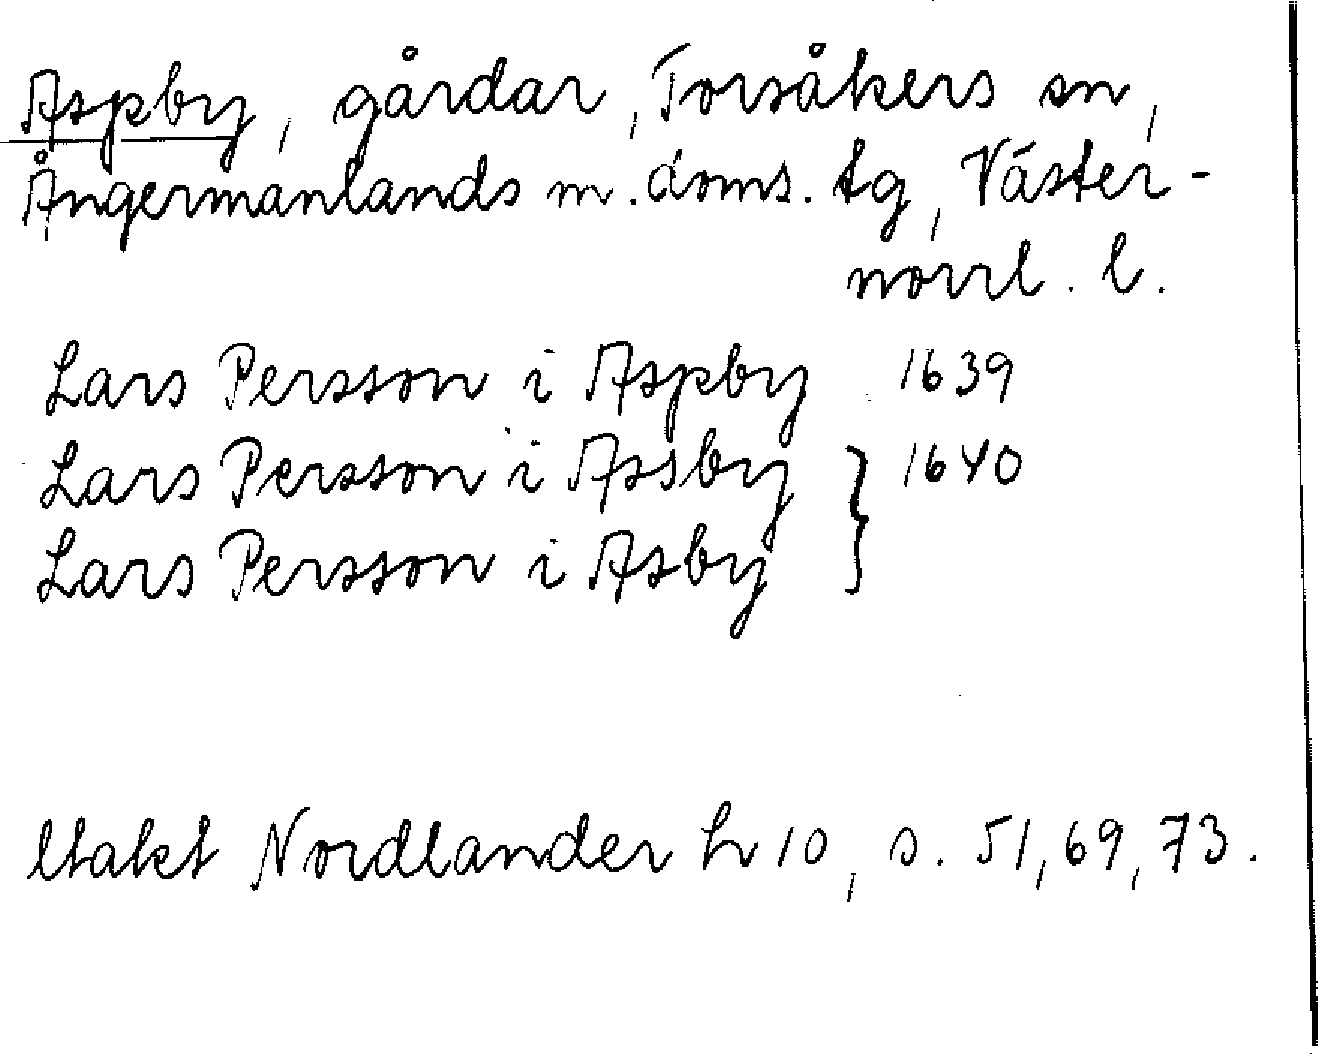 Aspby, gårdar, Torsåkers sn,
Ångermanlands m. doms. tg, Väster-
norrl. l.
Lars Persson i Aspby 1639
Lars Persson i Assby } 1640
Lars Persson i Asby
Utakt Nordlander h 10, s. 51, 69, 73.